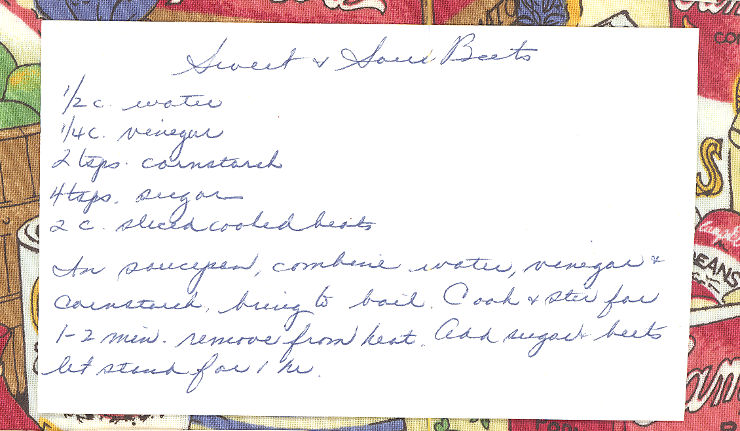 Sweet & Sour Beets
1/2 c. water
1/4 c. vinegar
2 tsps. cornstarch
4 tsps. sugar
2 c. sliced cooked beets
In saucepan, combine water, vinegar &
cornstarch, bring to boil. Cook & stir for
1-2 min. remove from heat. Add sugar & beets
let stand for 1 hr.
Campbell's
BEANS